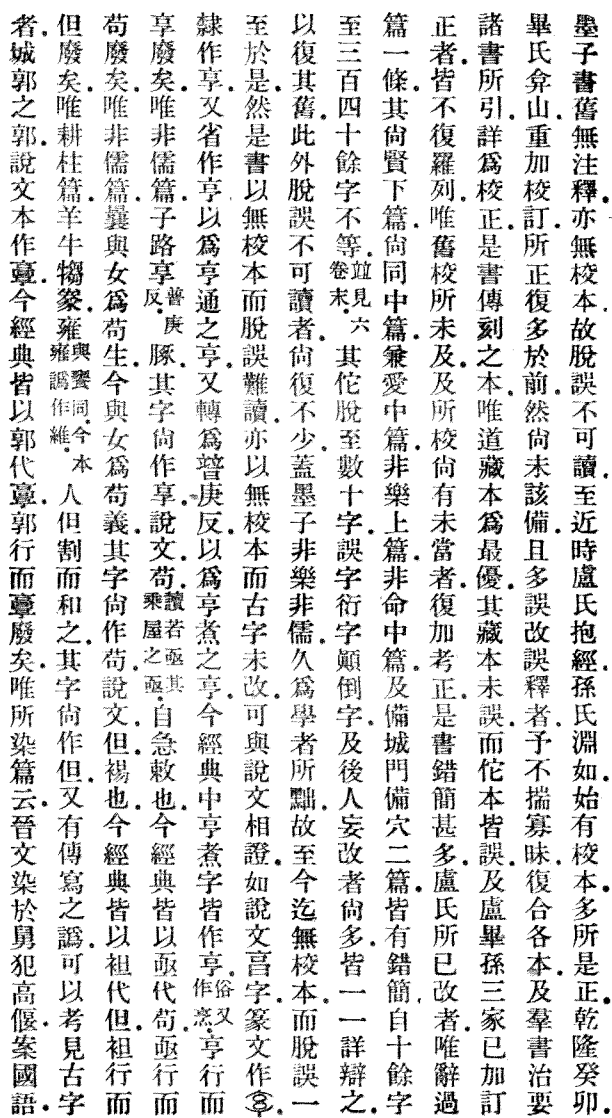 墨子書舊無注釋.亦無校本.故脫誤不可讀.至近時盧氏抱經.孫氏淵如.始有校本.多所是正.乾隆癸卯
畢氏弇山重加校訂.所正復多於前.然尚未該備.且多誤改誤釋者.予不揣寡昧.復合各本及羣書治要
諸書所引.詳爲校正.是書傳刻之本.唯道藏本爲最優.其藏本未誤.而佗本皆誤.及盧畢孫三家已加訂
正者.皆不復羅列.唯舊校所未及.及所校尚有未當者.復加考正.是書錯簡甚多.盧氏所已改者.唯辭過
篇一條.其尚賢下篇.尚同中篇.兼愛中篇.非樂上篇.非命中篇.及備城門備穴二篇.皆有錯簡.自十餘字
至三百四十餘字不等.竝見六卷末.其佗脫至數十字.誤字衍字.顛倒字.及後人妄改者尚多.皆一一詳辯之.
以復其舊.此外脫誤不可讀者.尚復不少.蓋墨子非樂非儒.久爲學者所黜.故至今迄無校本.而脫誤一
至於是.然是書以無校本而脫誤難讀.亦以無校本而古字未改.可與說文相證.如說文亯字.篆文作
隸作享.又省作亨.以爲亨通之亨.又轉爲普庚反.以爲亨煮之亨.今經典中亨煮字皆作亨.俗又作烹.亨行而
享廢矣.唯非儒篇.子路享普庚反.豚.其字尚作享.說文.苟.讀若亟其乘屋之亟.自急敕也.今經典皆以亟代苟.亟行而
苟廢矣.唯非儒篇.曩與女爲苟生.今與女爲苟義.其字尚作苟.說文.但.裼也.今經典皆以袒代但.袒行而
但廢矣.唯耕柱篇.羊牛犓豢.雍與饔同.今本雍譌作維.人但割而和之.其字尚作但.又有傳寫之譌.可以考見古字
者.城郭之郭.說文本作𩫏.今經典皆以郭代𩫏.郭行而𩫏廢矣.唯所染篇云.晉文染於舅犯高偃.案國語.